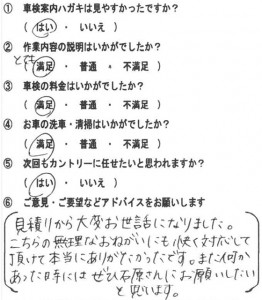 ① 車検案内ハガキは見やすかったですか？
（ はい ・ いいえ ）
② 作業内容の説明はいかがでしたか？
とても
（ 満足 ・ 普通 ・ 不満足 ）
③ 車検の料金はいかがでしたか？
（ 満足 ・ 普通 ・ 不満足 ）
④ お車の洗車・清掃はいかがでしたか？
（ 満足 ・ 普通 ・ 不満足 ）
⑤ 次回もカントリーに任せたいと思われますか？
（ はい ・ いいえ ）
⑥ ご意見・ご要望などアドバイスをお願いします
見積りから大変お世話になりました。
こちらの無理なおねがいにも快く対応して
頂けて本当にありがたかったです。また何か
あった時にはぜひ石原さんにお願いしたい
と思います。